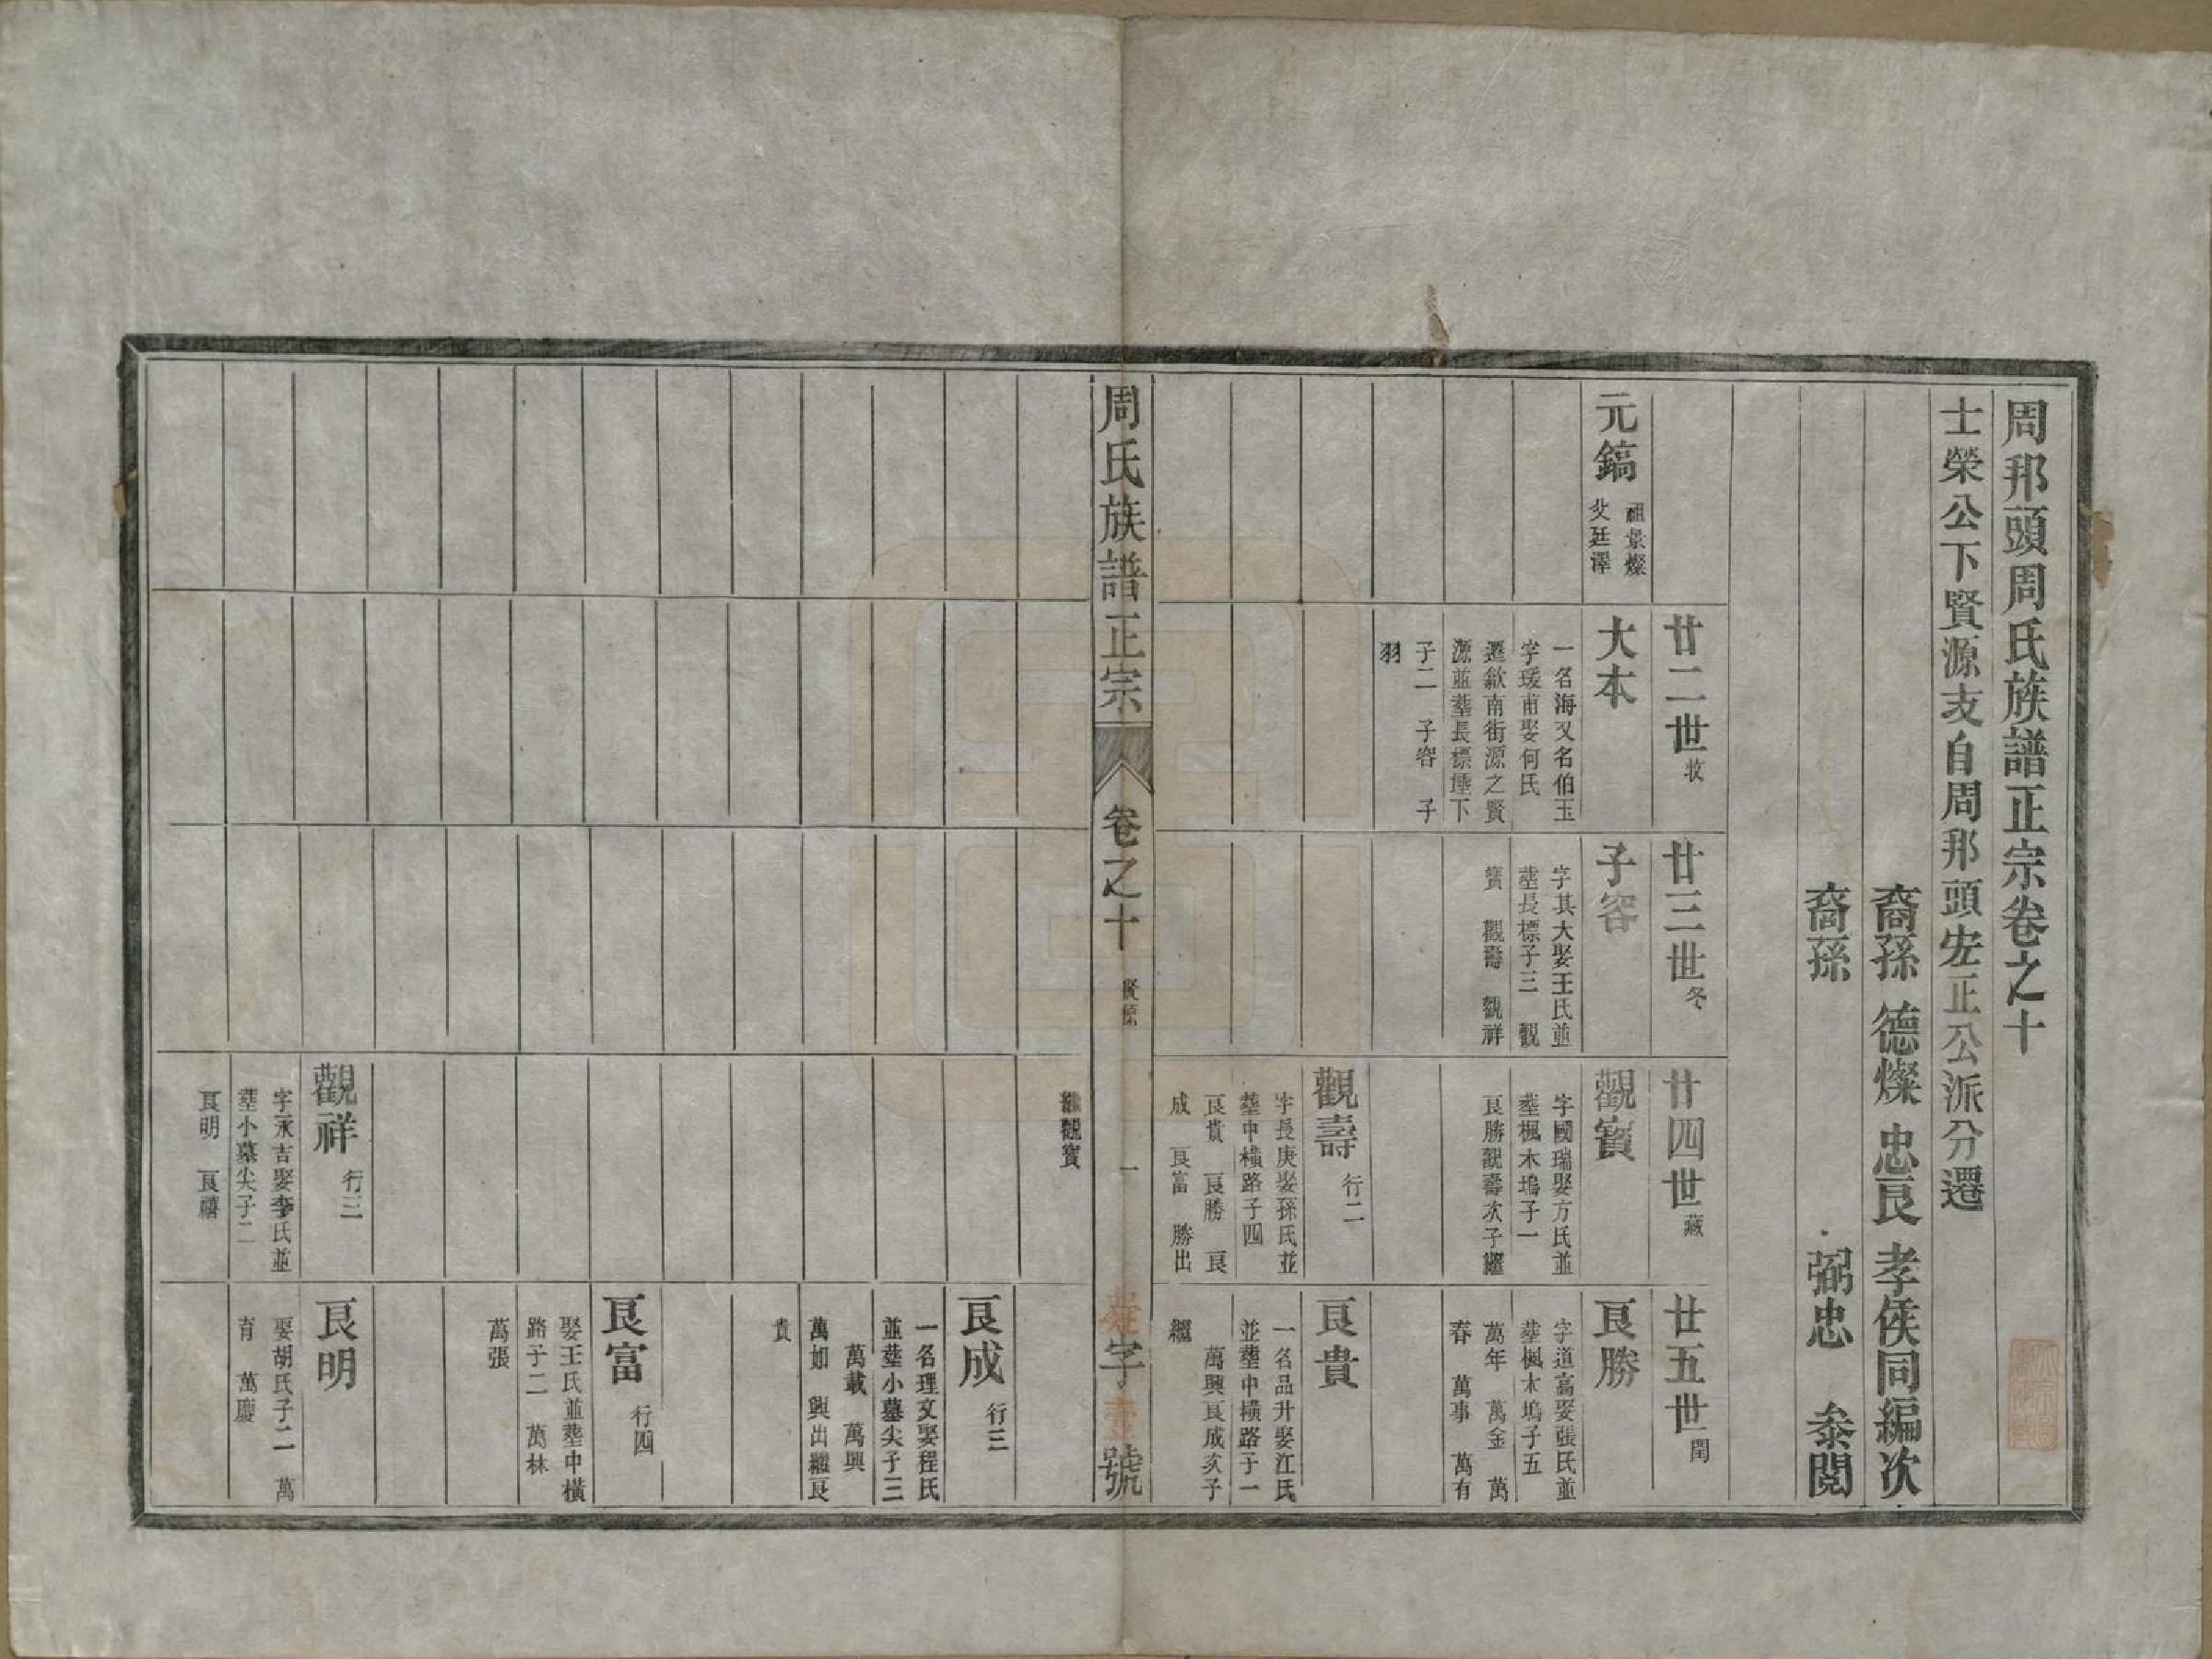 周邦頭周氏族譜正宗卷之十
士榮公下賢源支自周邦頭宏正公派分遷
裔孫 德燦 忠良 孝侯同編次
裔孫 弼忠 叅閱
廿二世收
廿三世冬
廿四世藏
廿五世閏
元鎬
祖景燦
父廷澤
大本
一名海又名伯玉
字瑗甫娶何氏
遷歙南街源之賢
源並塟長標塦下
子二 子容 子
羽
子容
字其大娶王氏並
塟長標子三 觀
寶 觀壽 觀祥
觀寶
字國瑞娶方氏並
塟楓木塢子一
良勝觀壽次子繼
良勝
字道高娶張氏並
塟楓木塢子五
萬年 萬金 萬
春 萬事 萬有
觀壽 行二
字長庚娶孫氏並
塟中橫路子四
良貴 良勝 良
成 良富 勝出
繼觀寶
良貴
一名品升娶江氏
並塟中橫路子一
萬興良成次子
繼
周氏族譜正宗 卷之十 賢源 一
字 壹 號
良成 行三
一名理文娶程氏
並塟小墓尖子三
萬載 萬興
萬如 興出繼良
貴
良富 行四
娶王氏並塟中橫
路子二 萬林
萬張
觀祥 行三
字永吉娶李氏並
塟小墓尖子二
良明 良禧
良明
娶胡氏子二 萬
育 萬慶